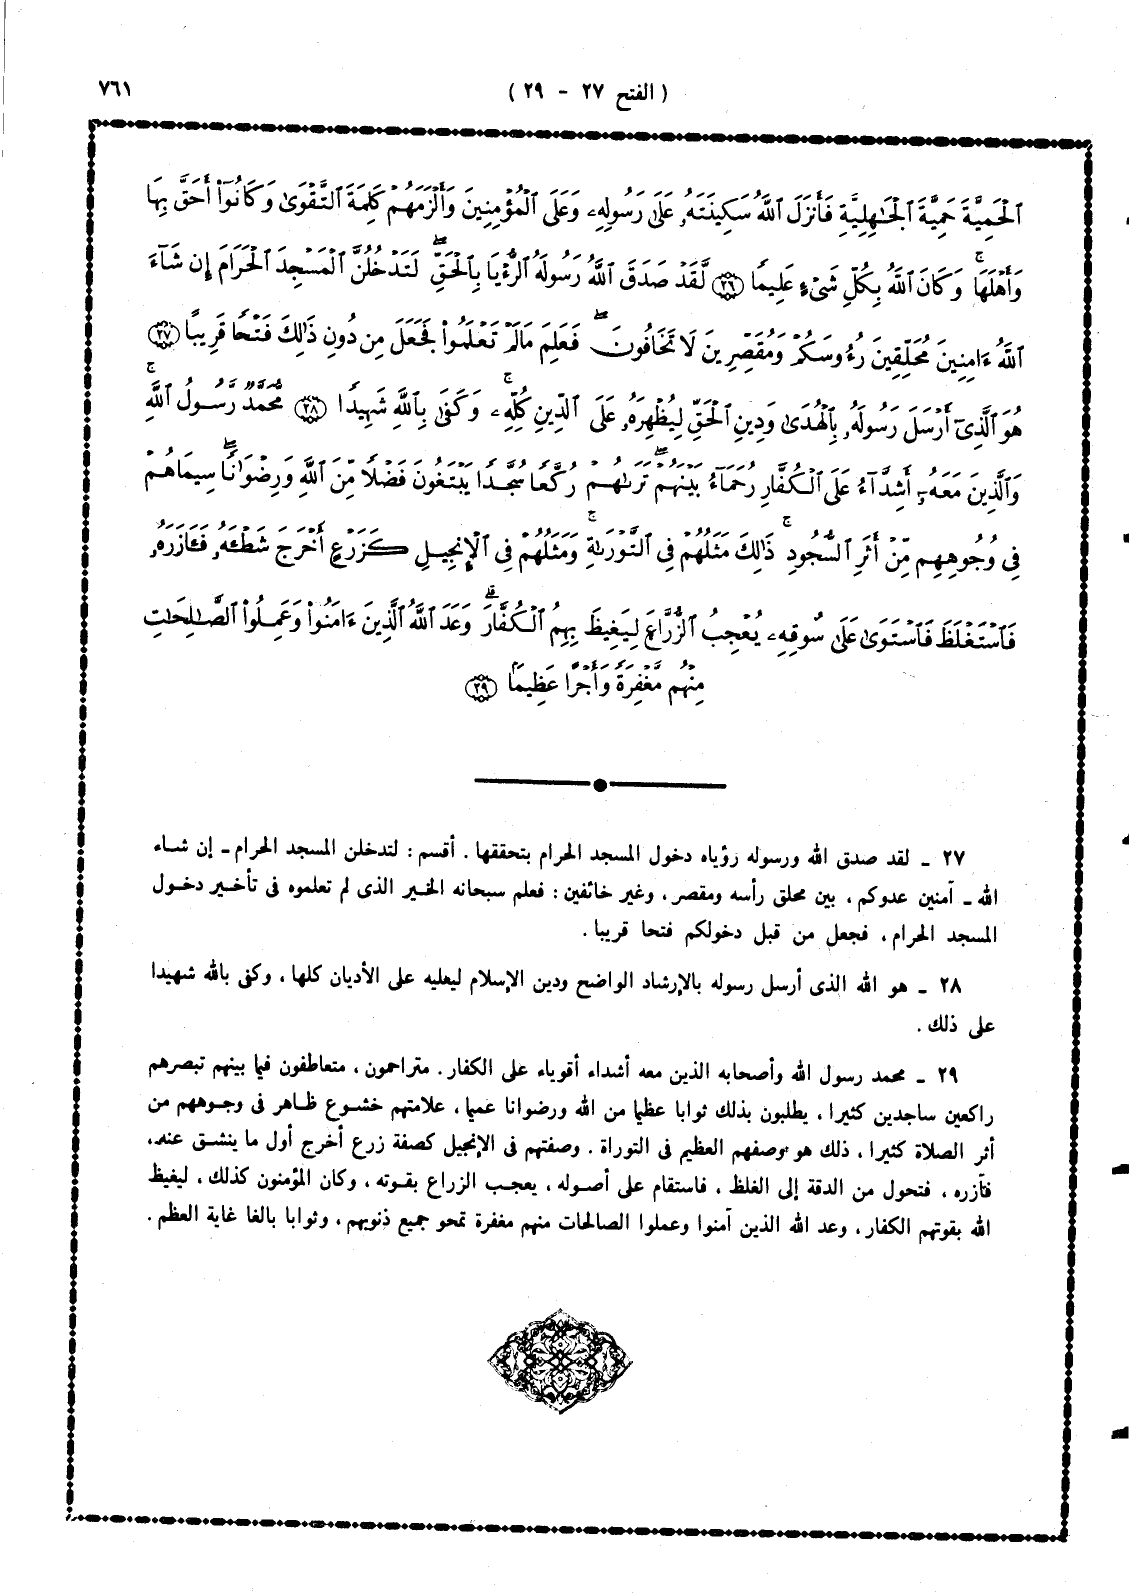 (الفتح ٢٧ - ٢٩)
٧٦١
ٱلْحَمِيَّةَ حَمِيَّةَ ٱلْجَٰهِلِيَّةِ فَأَنزَلَ ٱللَّهُ سَكِينَتَهُۥ عَلَىٰ رَسُولِهِۦ وَعَلَى ٱلْمُؤْمِنِينَ وَأَلْزَمَهُمْ كَلِمَةَ ٱلتَّقْوَىٰ وَكَانُوٓا۟ أَحَقَّ بِهَا
وَأَهْلَهَا ۚ وَكَانَ ٱللَّهُ بِكُلِّ شَىْءٍ عَلِيمًا ٢٦ لَّقَدْ صَدَقَ ٱللَّهُ رَسُولَهُ ٱلرُّءْيَا بِٱلْحَقِّ ۖ لَتَدْخُلُنَّ ٱلْمَسْجِدَ ٱلْحَرَامَ إِن شَآءَ
ٱللَّهُ ءَامِنِينَ مُحَلِّقِينَ رُءُوسَكُمْ وَمُقَصِّرِينَ لَا تَخَافُونَ ۖ فَعَلِمَ مَا لَمْ تَعْلَمُوا۟ فَجَعَلَ مِن دُونِ ذَٰلِكَ فَتْحًا قَرِيبًا ٢٧
هُوَ ٱلَّذِىٓ أَرْسَلَ رَسُولَهُۥ بِٱلْهُدَىٰ وَدِينِ ٱلْحَقِّ لِيُظْهِرَهُۥ عَلَى ٱلدِّينِ كُلِّهِۦ ۚ وَكَفَىٰ بِٱللَّهِ شَهِيدًا ٢٨ مُّحَمَّدٌ رَّسُولُ ٱللَّهِ ۚ
وَٱلَّذِينَ مَعَهُۥٓ أَشِدَّآءُ عَلَى ٱلْكُفَّارِ رُحَمَآءُ بَيْنَهُمْ ۖ تَرَىٰهُمْ رُكَّعًا سُجَّدًا يَبْتَغُونَ فَضْلًا مِّنَ ٱللَّهِ وَرِضْوَٰنًا ۖ سِيمَاهُمْ
فِى وُجُوهِهِم مِّنْ أَثَرِ ٱلسُّجُودِ ۚ ذَٰلِكَ مَثَلُهُمْ فِى ٱلتَّوْرَىٰةِ ۚ وَمَثَلُهُمْ فِى ٱلْإِنجِيلِ كَزَرْعٍ أَخْرَجَ شَطْـَٔهُۥ فَـَٔازَرَهُۥ
فَٱسْتَغْلَظَ فَٱسْتَوَىٰ عَلَىٰ سُوقِهِۦ يُعْجِبُ ٱلزُّرَّاعَ لِيَغِيظَ بِهِمُ ٱلْكُفَّارَ ۗ وَعَدَ ٱللَّهُ ٱلَّذِينَ ءَامَنُوا۟ وَعَمِلُوا۟ ٱلصَّٰلِحَٰتِ
مِنْهُم مَّغْفِرَةً وَأَجْرًا عَظِيمًۢا ٢٩
٢٧ ـ لقد صدق الله ورسوله رؤياه دخول المسجد الحرام بتحققها . أقسم : لتدخلن المسجد الحرام ـ إن شاء
الله ـ آمنين عدوكم ، بين محلق رأسه ومقصر ، وغير خائفين : فعلم سبحانه الخير الذى لم تعلموه فى تأخير دخول
المسجد الحرام ، فجعل من قبل دخولكم فتحا قريبا .
٢٨ ـ هو الله الذى أرسل رسوله بالإرشاد الواضح ودين الإسلام ليعليه على الأديان كلها ، وكفى بالله شهيدا
على ذلك .
٢٩ ـ محمد رسول الله وأصحابه الذين معه أشداء أقوياء على الكفار . متراحمون ، متعاطفون فيما بينهم تبصرهم
راكعين ساجدين كثيرا ، يطلبون بذلك ثوابا عظيما من الله ورضوانا عميما ، علامتهم خشوع ظاهر فى وجوههم من
أثر الصلاة كثيرا ، ذلك هو وصفهم العظيم فى التوراة . وصفتهم فى الإنجيل كصفة زرع أخرج أول ما ينشق عنه ،
فآزره ، فتحول من الدقة إلى الغلظ ، فاستقام على أصوله ، يعجب الزراع بقوته ، وكان المؤمنون كذلك ، ليغيظ
الله بقوتهم الكفار ، وعد الله الذين آمنوا وعملوا الصالحات منهم مغفرة تمحو جميع ذنوبهم ، وثوابا بالغا غاية العظم .